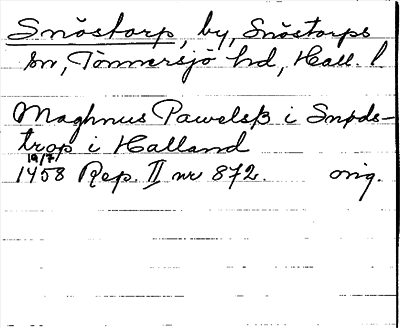 Snöstorp, by, Snöstorps
sn, Tönnersjö hd, Hall. l
Maghnus Pawelsß i Snøds-
trop i Halland
19/7
1458 Rep. II nr 872. orig.